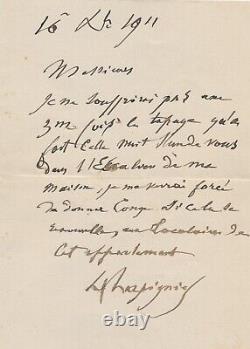 16 Dbre 1911
Messieurs
Je ne souffrirai pas une
2me fois le tapage qu'on
fait cette nuit rendez vous
dans l'Escalier de ma
maison, je me verrai forcé
de donner Congé si cela se
renouvelle, aux Locataires de
Cet appartement
H Harpignies